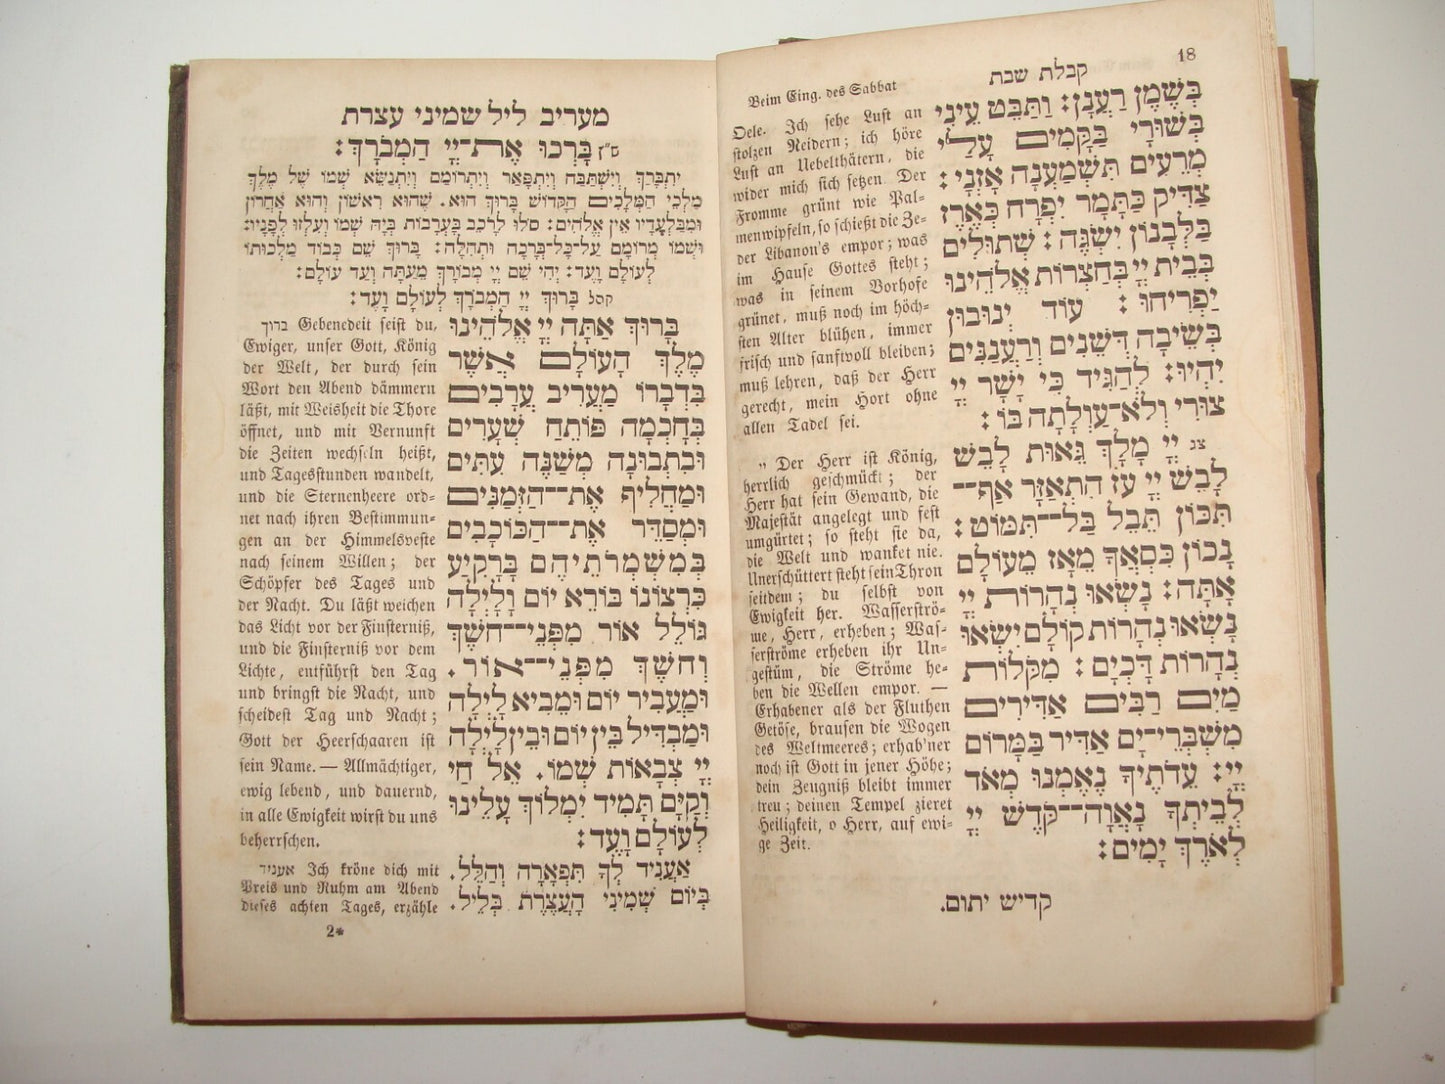 18
קבלת שבת
Beim Eing. des Sabbat
בְּשֶׁמֶן רַעֲנָן׃ וַתַּבֵּט עֵינִי
בְּשׁוּרָי בַּקָּמִים עָלַי
מְרֵעִים תִּשְׁמַעְנָה אָזְנָי׃
צַדִּיק כַּתָּמָר יִפְרָח כְּאֶרֶז
בַּלְּבָנוֹן יִשְׂגֶּה׃ שְׁתוּלִים
בְּבֵית יְיָ בְּחַצְרוֹת אֱלֹהֵינוּ
יַפְרִיחוּ׃ עוֹד יְנוּבוּן
בְּשֵׂיבָה דְּשֵׁנִים וְרַעֲנַנִּים
יִהְיוּ׃ לְהַגִּיד כִּי יָשָׁר יְיָ
צוּרִי וְלֹא־עַוְלָתָה בּוֹ׃
צג יְיָ מָלָךְ גֵּאוּת לָבֵשׁ
לָבֵשׁ יְיָ עֹז הִתְאַזָּר אַף־
תִּכּוֹן תֵּבֵל בַּל־תִּמּוֹט׃
נָכוֹן כִּסְאֲךָ מֵאָז מֵעוֹלָם
אָתָּה׃ נָשְׂאוּ נְהָרוֹת יְיָ
נָשְׂאוּ נְהָרוֹת קוֹלָם יִשְׂאוּ
נְהָרוֹת דָּכְיָם׃ מִקֹּלוֹת
מַיִם רַבִּים אַדִּירִים
מִשְׁבְּרֵי־יָם אַדִּיר בַּמָּרוֹם
יְיָ׃ עֵדֹתֶיךָ נֶאֶמְנוּ מְאֹד
לְבֵיתְךָ נָאֲוָה־קֹדֶשׁ יְיָ
לְאֹרֶךְ יָמִים׃
קדיש יתום.
Oele. Ich sehe Lust an
stolzen Neidern; ich höre
Lust an Uebelthätern, die
wider mich sich setzen. Der
Fromme grünt wie Pal-
menwipfeln, so schießt die Ze-
der Libanon's empor; was
im Hause Gottes steht;
was in seinem Vorhofe
grünet, muß noch im höch-
sten Alter blühen, immer
frisch und sanftvoll bleiben;
muß lehren, daß der Herr
gerecht, mein Hort ohne
allen Tadel sei.
„ Der Herr ist König,
herrlich geschmückt; der
Herr hat sein Gewand, die
Majestät angelegt und fest
umgürtet; so steht sie da,
die Welt und wanket nie.
Unerschüttert steht sein Thron
seitdem; du selbst von
Ewigkeit her. Wasserströ-
me, Herr, erheben; Was-
serströme erheben ihr Un-
gestüm, die Ströme he-
ben die Wellen empor. —
Erhabener als der Fluthen
Getöse, brausen die Wogen
des Weltmeeres; erhab'ner
noch ist Gott in jener Höhe;
dein Zeugniß bleibt immer
treu; deinen Tempel zieret
Heiligkeit, o Herr, auf ewi-
ge Zeit.
מעריב ליל שמיני עצרת
ש״ץ בָּרְכוּ אֶת־יְיָ הַמְבֹרָךְ׃
יִתְבָּרַךְ וְיִשְׁתַּבַּח וְיִתְפָּאַר וְיִתְרוֹמַם וְיִתְנַשֵּׂא שְׁמוֹ שֶׁל מֶלֶךְ
מַלְכֵי הַמְּלָכִים הַקָּדוֹשׁ בָּרוּךְ הוּא. שֶׁהוּא רִאשׁוֹן וְהוּא אַחֲרוֹן
וּמִבַּלְעָדָיו אֵין אֱלֹהִים׃ סֹלּוּ לָרֹכֵב בָּעֲרָבוֹת בְּיָהּ שְׁמוֹ וְעִלְזוּ לְפָנָיו׃
וּשְׁמוֹ מְרוֹמַם עַל־כָּל־בְּרָכָה וּתְהִלָּה׃ בָּרוּךְ שֵׁם כְּבוֹד מַלְכוּתוֹ
לְעוֹלָם וָעֶד׃ יְהִי שֵׁם יְיָ מְבוֹרָךְ מֵעַתָּה וְעַד עוֹלָם׃
קהל בָּרוּךְ יְיָ הַמְבֹרָךְ לְעוֹלָם וָעֶד׃
בָּרוּךְ אַתָּה יְיָ אֱלֹהֵינוּ
מֶלֶךְ הָעוֹלָם אֲשֶׁר
בִּדְבָרוֹ מַעֲרִיב עֲרָבִים
בְּחָכְמָה פּוֹתֵחַ שְׁעָרִים
וּבִתְבוּנָה מְשַׁנֶּה עִתִּים
וּמַחֲלִיף אֶת־הַזְּמַנִּים
וּמְסַדֵּר אֶת־הַכּוֹכָבִים
בְּמִשְׁמְרֹתֵיהֶם בָּרָקִיעַ
כִּרְצוֹנוֹ בּוֹרֵא יוֹם וָלָיְלָה
גּוֹלֵל אוֹר מִפְּנֵי־חֹשֶׁךְ
וְחֹשֶׁךְ מִפְּנֵי־אוֹר.
וּמַעֲבִיר יוֹם וּמֵבִיא לָיְלָה
וּמַבְדִּיל בֵּין יוֹם וּבֵין לָיְלָה
יְיָ צְבָאוֹת שְׁמוֹ. אֵל חַי
וְקַיָּם תָּמִיד יִמְלוֹךְ עָלֵינוּ
לְעוֹלָם וָעֶד׃
אַעֲנִיד לְךָ תִּפְאָרָה וְהַלֵּל.
בְּיוֹם שְׁמִינִי הָעֲצֶרֶת בְּלֵיל.
ברוך Gebenedeit seist du,
Ewiger, unser Gott, König
der Welt, der durch sein
Wort den Abend dämmern
läßt, mit Weisheit die Thore
öffnet, und mit Vernunft
die Zeiten wechseln heißt,
und Tagesstunden wandelt,
und die Sternenheere ord-
net nach ihren Bestimmun-
gen an der Himmelsveste
nach seinem Willen; der
Schöpfer des Tages und
der Nacht. Du läßt weichen
das Licht vor der Finsterniß,
und die Finsterniß vor dem
Lichte, entführst den Tag
und bringst die Nacht, und
scheidest Tag und Nacht;
Gott der Heerschaaren ist
sein Name. — Allmächtiger,
ewig lebend, und dauernd,
in alle Ewigkeit wirst du uns
beherrschen.
אעניד Ich kröne dich mit
Preis und Ruhm am Abend
dieses achten Tages, erzähle
2*